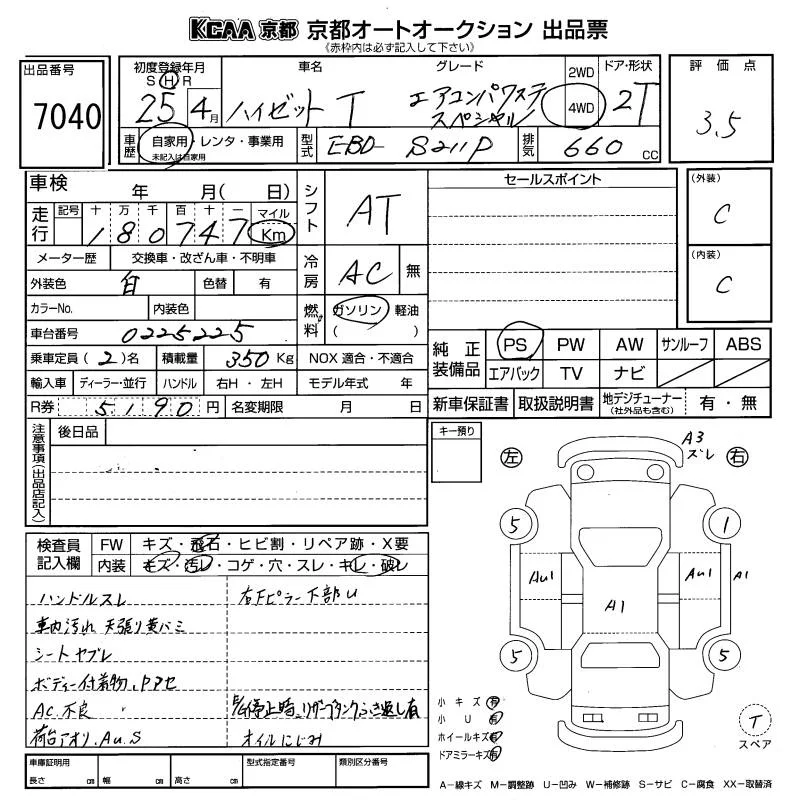 KCAA 京都 京都オートオークション 出品票
(赤枠内は必ず記入して下さい)
出品番号
7040
初度登録年月 車名 グレード 2WD ドア・形状
S H R
25 4月 ハイゼット T エアコンパワステ
スペシャル 4WD 2T
車歴 自家用・レンタ・事業用
未記入は自家用
型式 EBD- S211P 排気 660 CC
評価点
3.5
車検 年 月( 日)
走行 記号 十 万 千 百 十 一 マイル
1 8 0 7 4 7 Km
メーター歴 交換車・改ざん車・不明車
外装色 白 色替 有
カラーNo. 内装色
車台番号 0225225
乗車定員 (2)名 積載量 350 Kg NOX 適合・不適合
輸入車 ディーラー・並行 ハンドル 右H・左H モデル年式 年
R券 5190 円 名変期限 月 日
シフト AT
冷房 AC 無
燃料 ガソリン 軽油
( )
セールスポイント
(外装)
C
(内装)
C
純正装備品 PS PW AW サンルーフ ABS
エアバック TV ナビ
新車保証書 取扱説明書 地デジチューナー
(社外品も含む) 有・無
注意事項(出品店記入)
後日品
キー預り
左 右
A3
ズレ
5 1
Au1 Au1 A1
A1
5 5
検査員記入欄
FW キズ・飛石・ヒビ割・リペア跡・X要
内装 キズ・汚レ・コゲ・穴・スレ・キレ・破レ
ハンドルスレ 右下ピラー下部U
車内汚れ 天張り黄バミ
シートヤブレ
ボディー付着物、Pアセ
AC不良 停止時、リザーブタンクふき返し有
荷台アオリ、Au、S オイルにじみ
小キズ 有
小U 有
ホイールキズ 有
ドアミラーキズ 有
T
スペア
車庫証明用 型式指定番号 類別区分番号
長さ cm 幅 cm 高さ cm
A－線キズ M－調整跡 U－凹み W－補修跡 S－サビ C－腐食 XX－取替済